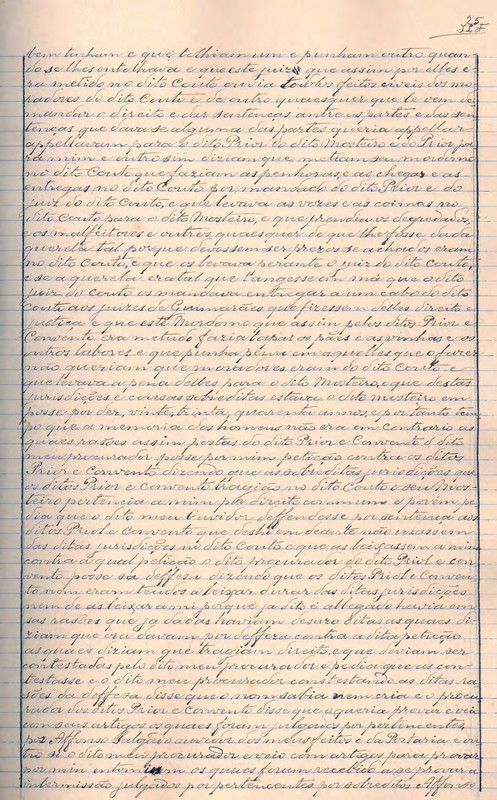 25
bem tinham e que tolhiam um e punham outro quan
do se lhes entolhava e que este juiz que assim por elles e
ra metido no dito Couto ouvia todolos feitos civeis dos mo
radores do dito Couto e de outro quaesquer que lhe vem de
mandar o direito e dar sentenças antre as partes e das sen
tenças que dava se alguma das partes queria appellar
appellavam para o dito Prior do dito Mosteiro e do Prior pa
ra mim e outro sim diziam que metiam seu mordomo
no dito Couto que faziam as penhoras, e as chegas e as
entregas no dito Couto por mandado do dito Prior e do
juiz do dito Couto, e que levava as vozes e as coimas no
dito Couto para o dito Mosteiro, e que prendia os degredados,
e os malfeitores e outros quaesquer de que lhe fosse dada
querela tal porque devessem ser prezos se achados eram
no dito Couto, e que os levava perante o juiz do dito Couto,
e se a querela era tal que tangesse em má que o dito
juiz do couto os mandava entregar a um cabo do dito
Couto aos juizes de Guimarães que fizessem delles direito e
justiça e que este Mordomo que assim pelos ditos Prior e
Convento era metudo fazia tapar os pães e as vinhas e os
outros labores e que punha pena em aquelles que o fazer
não queriam que moradores eram do dito Couto e
que levava a pena delles para o dito Mosteiro, e que destas
jurisdições e cousas sobreditas estava o dito mosteiro em
posse por dez, vinte, trinta, quarenta annos, e por tanto tem
po que a memoria dos homens não era em contrario as
quaes rasões assim postas do dito Prior e Convento o dito
meu procurador posse por mim petição contra os ditos
Prior e Convento dizendo que as sobreditas jurisdições que
os ditos Prior e convento tragião no dito Couto e seu Mos
teiro pertencia a mim por direito commum e porém pe
dia que o dito meu Ouvidor deffendesse por sentença aos
ditos Priol e Convento que deshi em deante não usassem
das ditas jurisdições no dito Couto e que as leixassem a mim
contra a qual petição o dito procurador do dito Priol e con
vento posse sa deffesa dizendo que os ditos Priol e Conven
to nom eram teudos a leixar d'usar das ditas jurisdições
nem de as leixar a mi porque ja dito e allegado havia em
sas rasões que ja dadas haviam desuzo ditas as quaes di
ziam que ora davam por deffeza contra a dita petição
as quaes diziam que tragiam direito, e que deviam ser
contestadas pelo dito meu procurador e pedia que as con
testasse e o dito meu procurador contestando as ditas ra
sões da deffeza disse que o nom sabia nem cria e o procu
rador dos ditos Prior e Convento disse que o queria provar e veio
com seus artigos os quaes foram julgados por pertencentes
por Affonso ouvidor dos meus feitos e da Portaria e ou
tro si o dito meu procurador e veio com artigos para provar
por mim os quaes foram recebido a se provar a
intermissão julgados por pertencentes por sobredito Affonso